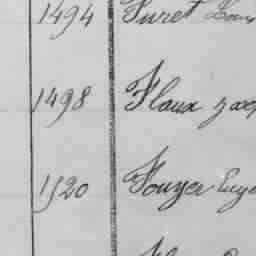 1494 Furet Loui
1498 Flaux Jose
1520 Fouyer Euge